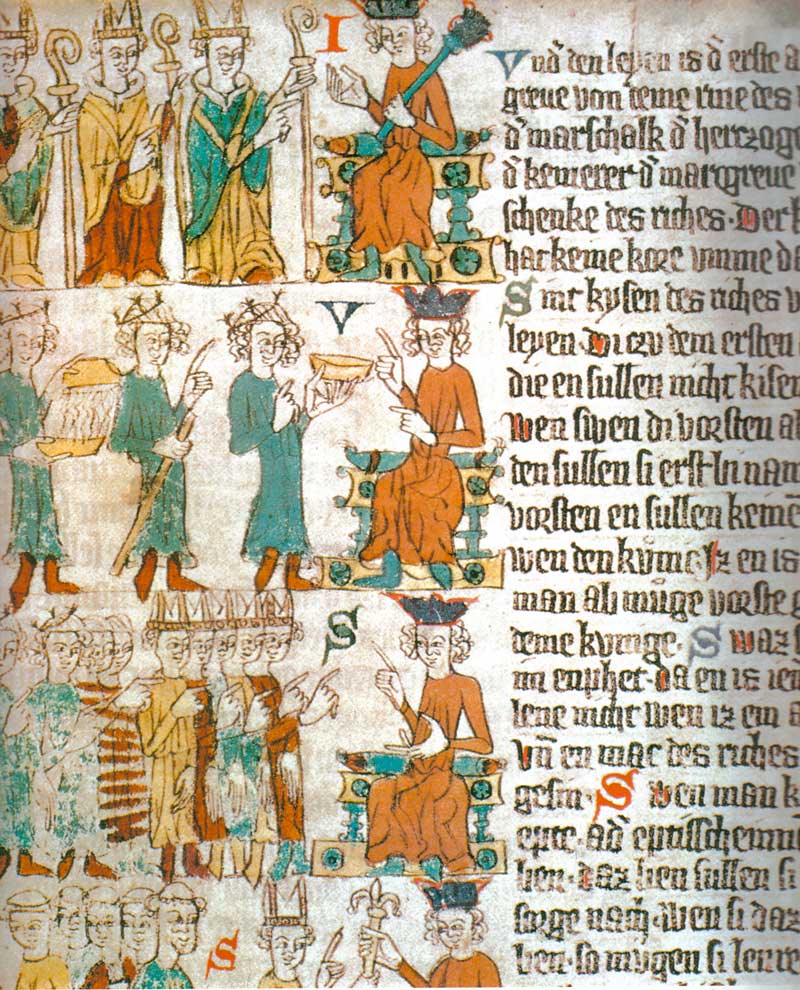 I
V
S
S
Vnd' den leyen is d' erste
greue von deme rine des
d' marschalk d' herczoge
d' kemerer · d' marcgreue
schenke des riches · Der
hat keine kore vmme
Sint kysen des riches
leyen · Di czu dem ersten
die en sullen nicht kisen
Wen swen di vorsten
den sullen si erst In
vorsten en sullen keinē
wen den kvnic · Iz en is
man ab muge vorste
deme kvnige · Swaz
in enphet · da en is
lene nicht wen iz ein
Vn̄ en mac des riches
gesin · Swen man
epte · ad'
daz lien sullen si
sorge nach · wen si daz
ben · so mugen si